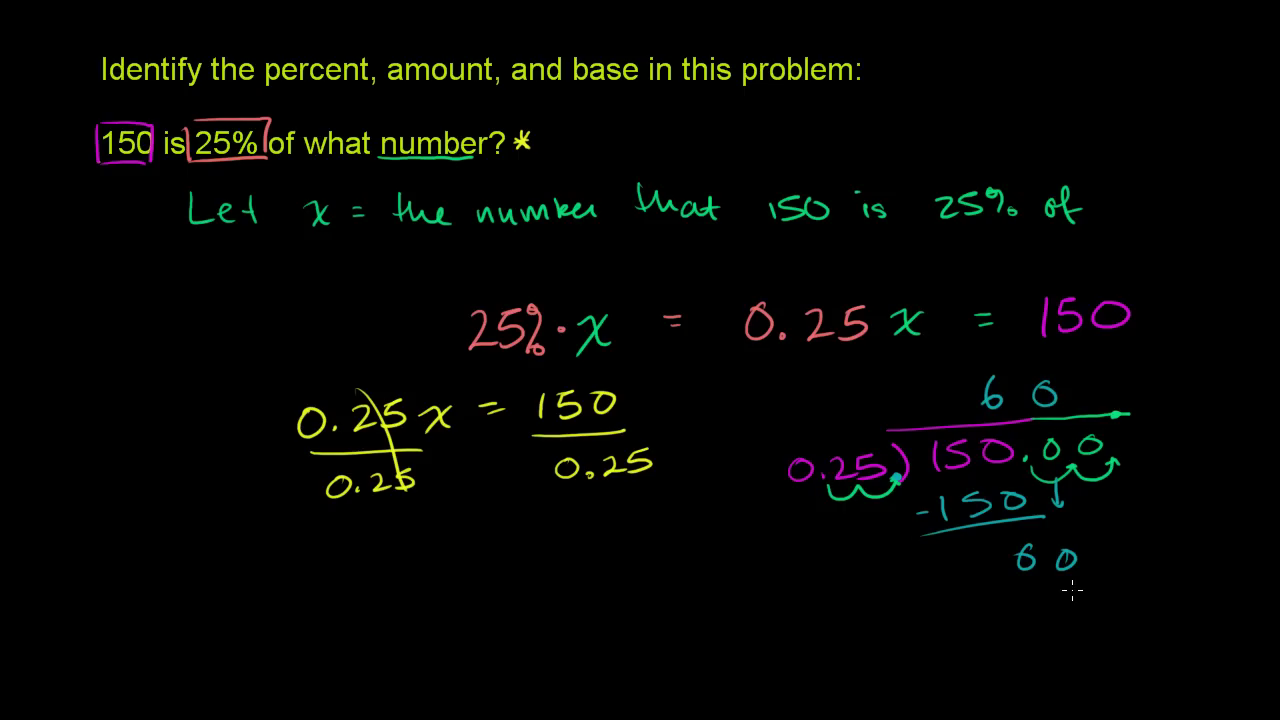 Identify the percent, amount, and base in this problem:
150 is 25% of what number? *
Let x = the number that 150 is 25% of
25% · x = 0.25 x = 150
0.25 x = 150
0.25 0.25
6 0
0.25) 150.00
-150
60